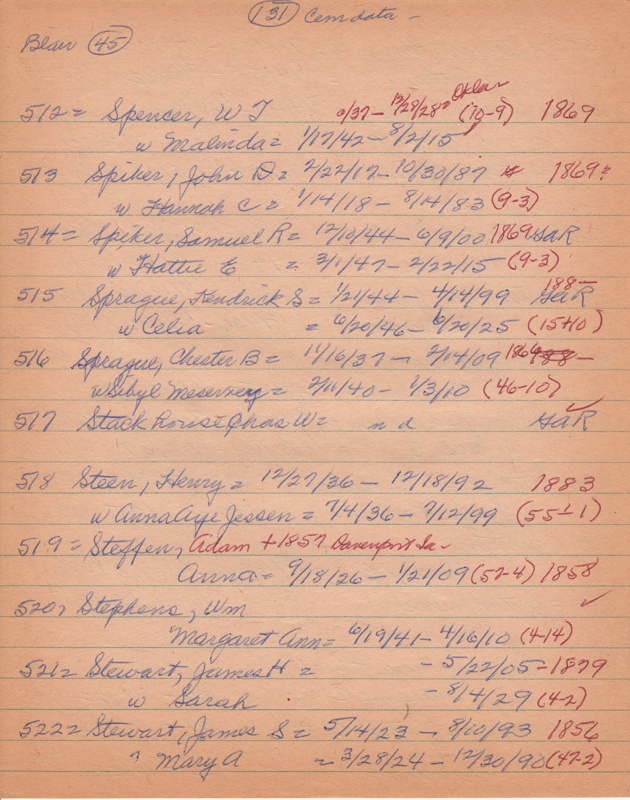 (131) Cem data -
Blair (45)
512 = Spencer, W T 6/37 - 12/28/28 Okla (10-9) 1869
w Malinda = 1/17/42 - 8/2/15
513 Spiker, John D = 2/22/17 - 10/30/87 1869 =
w Hannah C = 1/14/18 - 8/14/83 (9-3)
514 = Spiker, Samuel R = 12/10/44 - 6/9/00 1869 GaR
w Hattie E = 3/1/47 - 2/22/15 (9-3)
188-
515 Sprague, Kendrick S = 1/21/44 - 4/14/99 GaR
w Celia = 6/20/46 - 6/20/25 (15+10)
516 Sprague, Chester B = 11/16/37 - 2/14/09
w Sibyl Meservey = 2/11/40 - 1/3/10 (46-10)
517 Stackhouse Chas W = n d GaR
518 Steen, Henry = 12/27/36 - 12/18/92 1883
w Anna Aye Jessen = 7/4/36 - 7/12/99 (55-1)
519 = Steffen, Adam + 1857 Davenport Ia -
Anna = 9/18/26 - 1/21/09 (52-4) 1858
520, Stephens, Wm
Margaret Ann = 6/19/41 - 4/16/10 (4-14)
521 = Stewart, James H = - 5/22/05 - 1879
w Sarah - 8/4/29 (4-2)
522 = Stewart, James S = 5/14/23 - 8/10/93 1856
" Mary A = 3/28/24 - 12/30/90 (47-2)